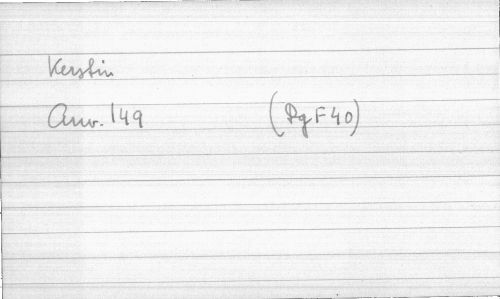 Kerstin
Anv. 149 (Rg F 40)